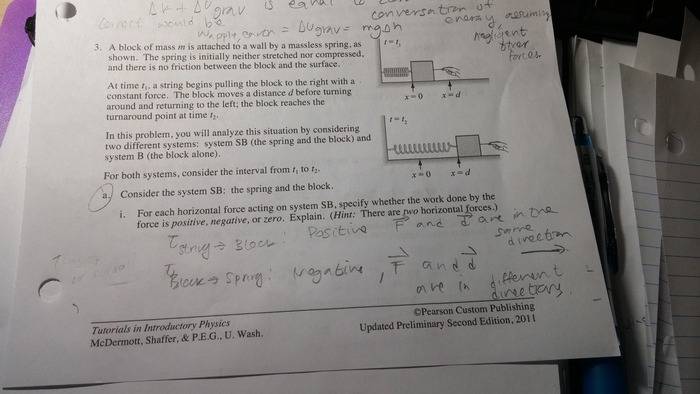 Δk + ΔUgrav is equal to
correct would be conversation of
Wapple, earth = ΔUgrav = mgΔh energy, assuming
negligent
other
forces.
3. A block of mass m is attached to a wall by a massless spring, as
shown. The spring is initially neither stretched nor compressed,
and there is no friction between the block and the surface.
t = t₁
x = 0 x = d
At time t₁, a string begins pulling the block to the right with a
constant force. The block moves a distance d before turning
around and returning to the left; the block reaches the
turnaround point at time t₂.
t = t₂
x = 0 x = d
In this problem, you will analyze this situation by considering
two different systems: system SB (the spring and the block) and
system B (the block alone).
For both systems, consider the interval from t₁ to t₂.
a. Consider the system SB: the spring and the block.
i. For each horizontal force acting on system SB, specify whether the work done by the
force is positive, negative, or zero. Explain. (Hint: There are two horizontal forces.)
String → Block: Positive F and d are in the
same
direction
Block → Spring: Negative, F and d
are in different
directions.
Tutorials in Introductory Physics
McDermott, Shaffer, & P.E.G., U. Wash.
©Pearson Custom Publishing
Updated Preliminary Second Edition, 2011